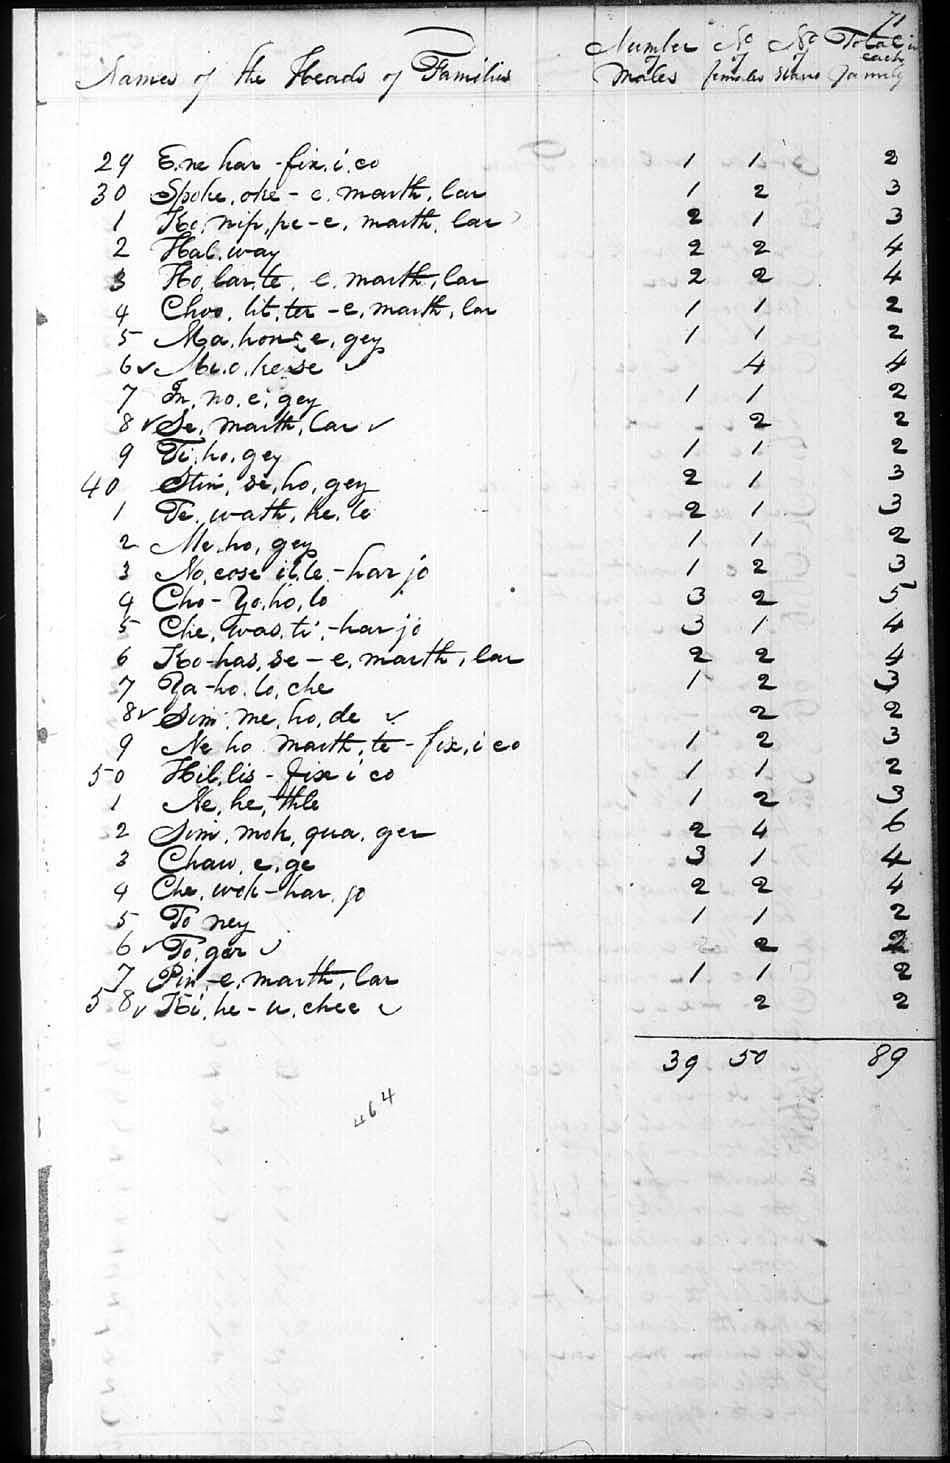 71
Names of the Heads of Families Number of Males No of females No of slaves Total in each family
29 E.ne har - fix.i.co 1 1 2
30 Spoke.oke - e. marth, lar 1 2 3
1 Ko, nip, pe - e, marth, lar 2 1 3
2 Hal, way 2 2 4
3 Ho, lar, te, - e, marth, lar 2 2 4
4 Choo, lit, ter - e, marth, lar 1 1 2
5 Ma, hon e, gey 1 1 2
6 ✓ ✓ 4 4
7 In, no, e, gey 1 1 2
8 ✓ Se, marth, lar ✓ 2 2
9 Ti, ho, gey 1 1 2
40 Stim, se, ho, gey 2 1 3
1 Te, wath, ke, le 2 1 3
2 Me, ho, gey 1 1 2
3 No, cose il, le - har jo 1 2 3
4 Cho - Yo, ho, lo 3 2 5
5 Che, was, ti, - har jo 3 1 4
6 Ko - has, se - e, marth, lar 2 2 4
7 Ya - ho, lo, che 1 2 3
8 ✓ Sim, me, ho, de ✓ 2 2
9 Ne ho marth, te - fix, i co 1 2 3
50 Hil, lis - fix i co 1 1 2
1 Ne, he, thle 1 2 3
2 Sim, moh, qua, ger 2 4 6
3 Chaw, e, ge 3 1 4
4 Che, woh - har, jo 2 2 4
5 To ney 1 1 2
6 ✓ To, ger ✓ 2 2
7 Pin, - e, marth, lar 1 1 2
58 ✓ Ki, he - u, chee ✓ 2 2
39 50 89
464